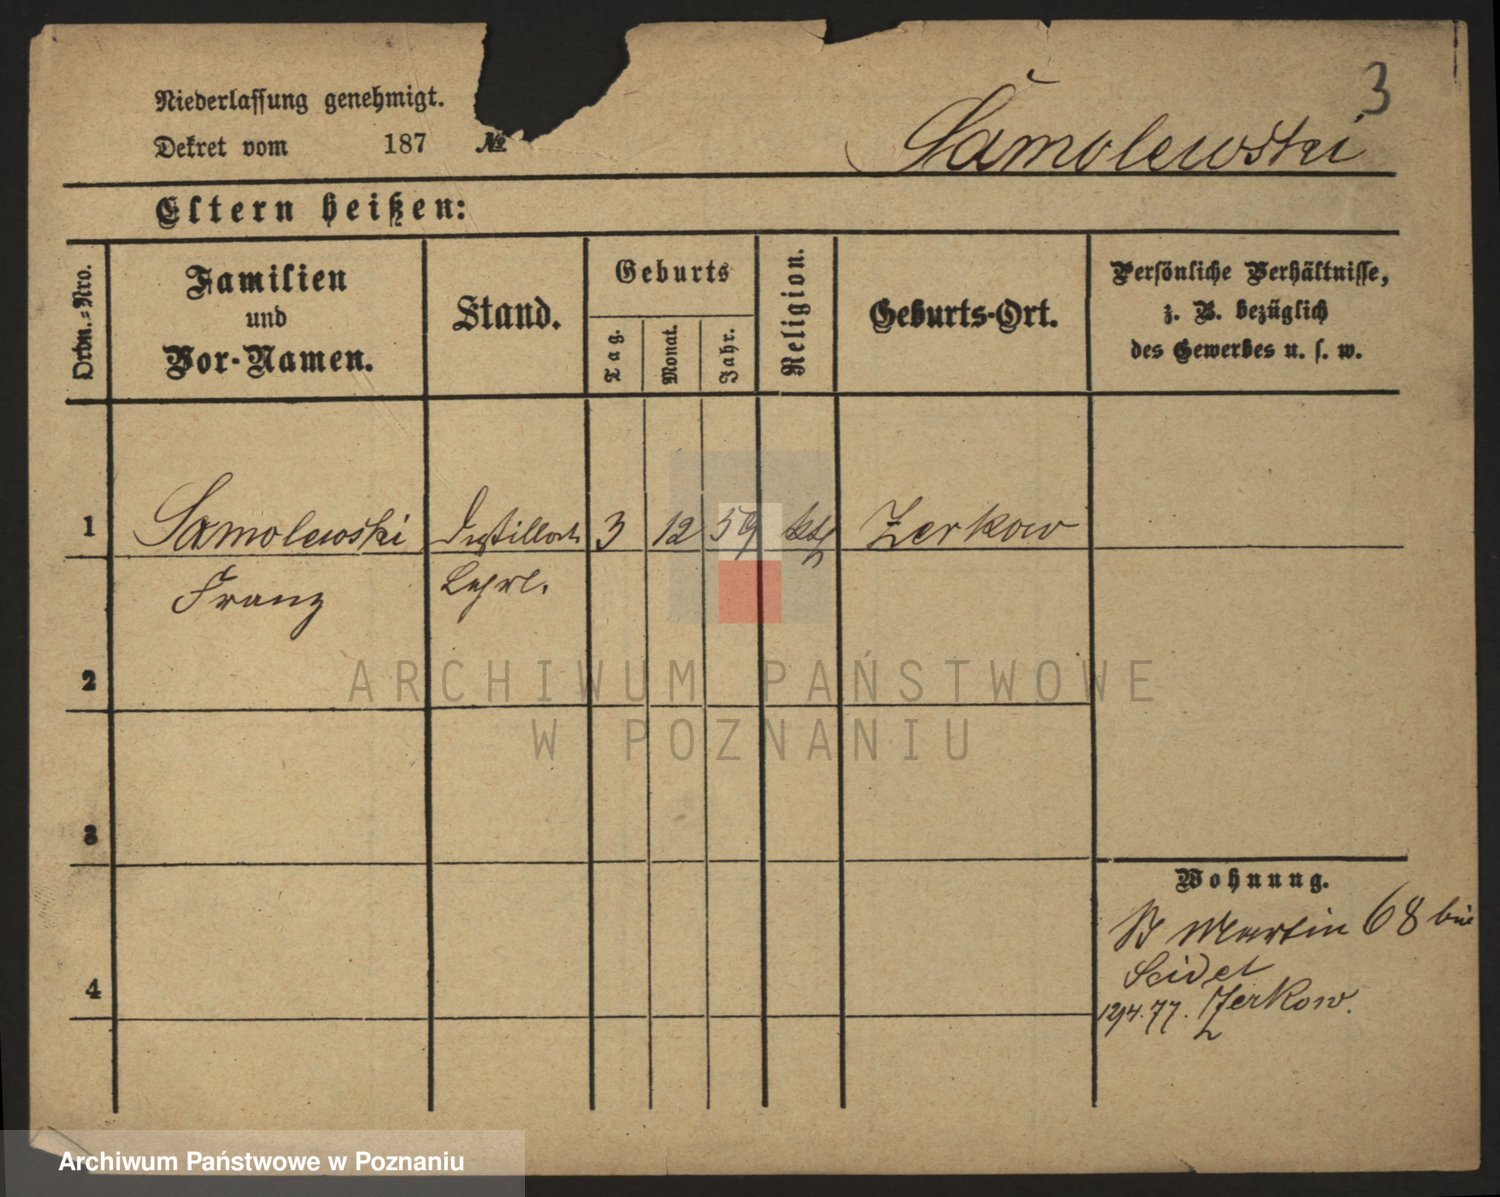 3
Niederlassung genehmigt.
Dekret vom 187 №
Samolewski
Eltern heißen:
Ordn.-Nro.
Familien
und
Vor-Namen.
Stand.
Geburts
Tag.
Monat.
Jahr.
Religion.
Geburts-Ort.
Persönliche Verhältnisse,
z. B. bezüglich
des Gewerbes u. s. w.
1 Samolewski 3 12 59 kth Zerkow
Franz Lehrl.
2
3
4
Wohnung.
St Martin 68 bei
Seidel
12/4.77. Zerkow.
ARCHIWUM PAŃSTWOWE
W POZNANIU
Archiwum Państwowe w Poznaniu